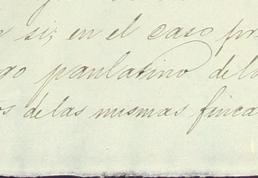 si; en el caso pr
go paulatino de l
os de las mismas finca